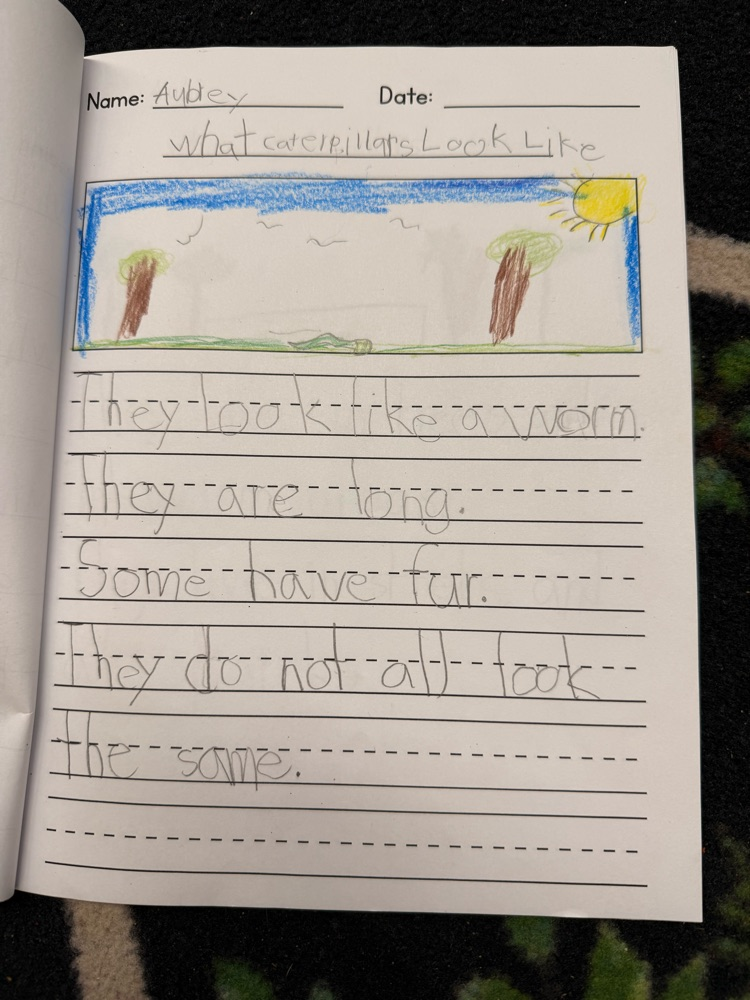 Name: Aubrey Date:
What caterpillars Look Like
They look like a worm.
They are long.
Some have fur.
They do not all look
the same.